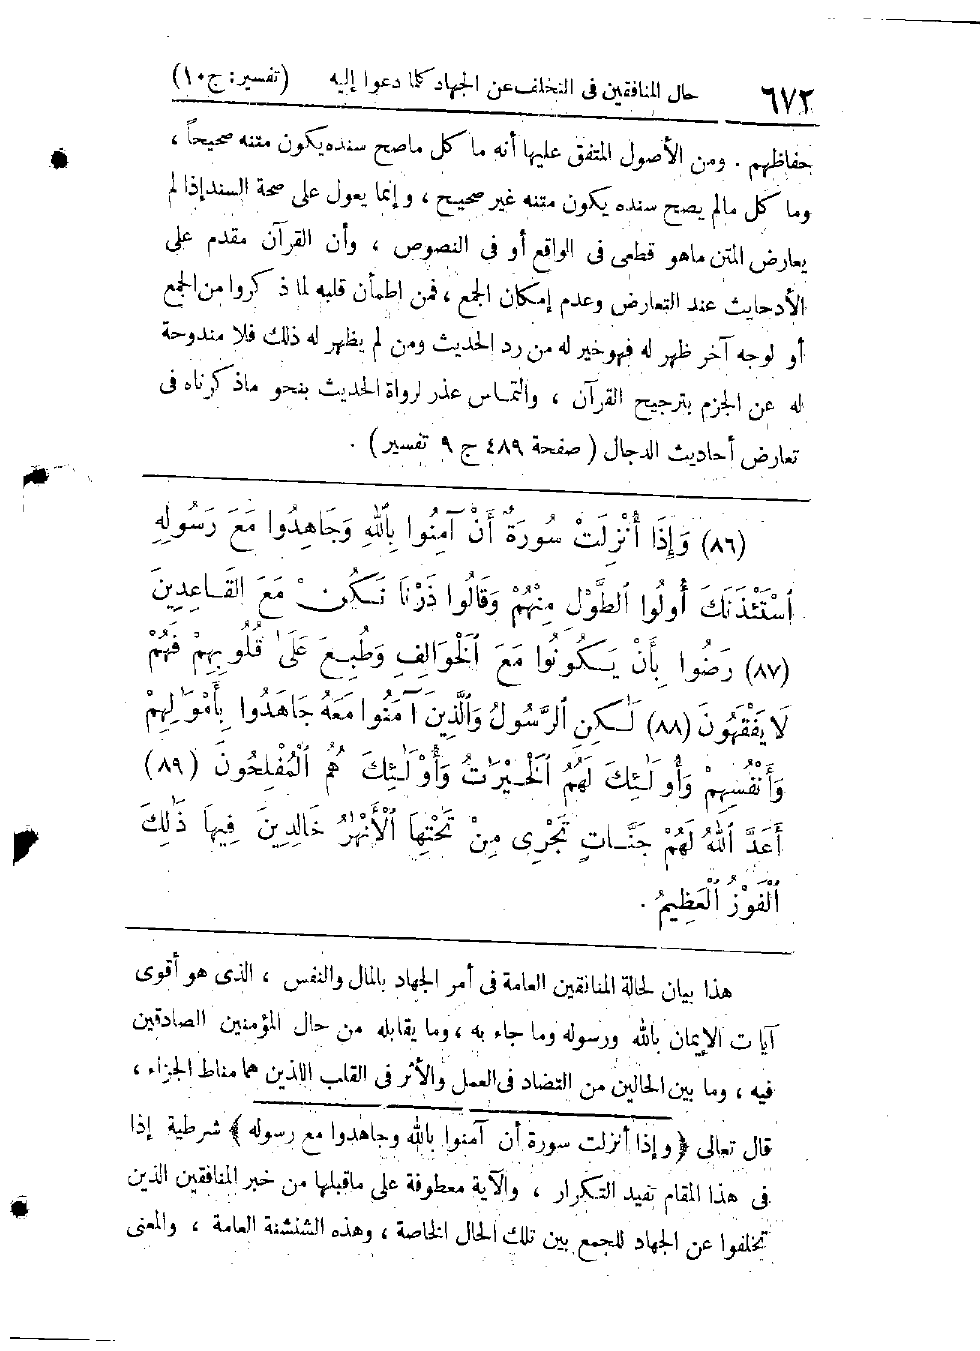 ٦٧٢ حال المنافقين فى التخلف عن الجهاد كلما دعوا إليه (تفسير: ج ١٠)
حفاظهم . ومن الأصول المتفق عليها أنه ما كل ماصح سنده يكون متنه صحيحاً ،
وما كل مالم يصح سنده يكون متنه غير صحيح ، وإنما يعول على صحة السند إذا لم
يعارض المتن ماهو قطعى فى الواقع أو فى النصوص ، وأن القرآن مقدم على
الأدحايث عند التعارض وعدم إمكان الجمع ، فمن اطمأن قلبه لما ذكروا من الجمع
أو لوجه آخر ظهر له فهو خير له من رد الحديث ومن لم يظهر له ذلك فلا مندوحة
له عن الجزم بترجيح القرآن ، والتماس عذر لرواة الحديث بنحو ماذكرناه فى
تعارض أحاديث الدجال ( صفحة ٤٨٩ ج ٩ تفسير ) .
(٨٦) وَإِذَا أُنْزِلَتْ سُورَةٌ أَنْ آمِنُوا بِاللهِ وَجَاهِدُوا مَعَ رَسُولِهِ
اسْتَئْذَنَكَ أُولُوا الطَّوْلِ مِنْهُمْ وَقَالُوا ذَرْنَا نَكُنْ مَعَ الْقَاعِدِينَ
(٨٧) رَضُوا بِأَنْ يَكُونُوا مَعَ الْخَوَالِفِ وَطُبِعَ عَلَىٰ قُلُوبِهِمْ فَهُمْ
لَا يَفْقَهُونَ (٨٨) لَٰكِنِ الرَّسُولُ وَالَّذِينَ آمَنُوا مَعَهُ جَاهَدُوا بِأَمْوَٰلِهِمْ
وَأَنْفُسِهِمْ وَأُولَٰئِكَ لَهُمُ الْخَيْرَٰتُ وَأُولَٰئِكَ هُمُ الْمُفْلِحُونَ (٨٩)
أَعَدَّ اللهُ لَهُمْ جَنَّاتٍ تَجْرِى مِنْ تَحْتِهَا الْأَنْهَٰرُ خَالِدِينَ فِيهَا ذَٰلِكَ
الْفَوْزُ الْعَظِيمُ .
هذا بيان لحالة المنافقين العامة فى أمر الجهاد بالمال والنفس ، الذى هو أقوى
آيات الإيمان بالله ورسوله وما جاء به ، وما يقابله من حال المؤمنين الصادقين
فيه ، وما بين الحالين من التضاد فى العمل والأثر فى القلب اللذين هما مناط الجزاء ،
قال تعالى ﴿ وإذا أنزلت سورة أن آمنوا بالله وجاهدوا مع رسوله ﴾ شرطية إذا
فى هذا المقام تفيد التكرار ، والآية معطوفة على ماقبلها من خبر المنافقين الذين
تخلفوا عن الجهاد للجمع بين تلك الحال الخاصة ، وهذه الشنشنة العامة ، والمعنى